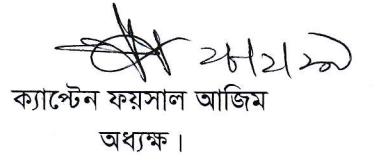 ক্যাপ্টেন ফয়সাল আজিম
অধ্যক্ষ।